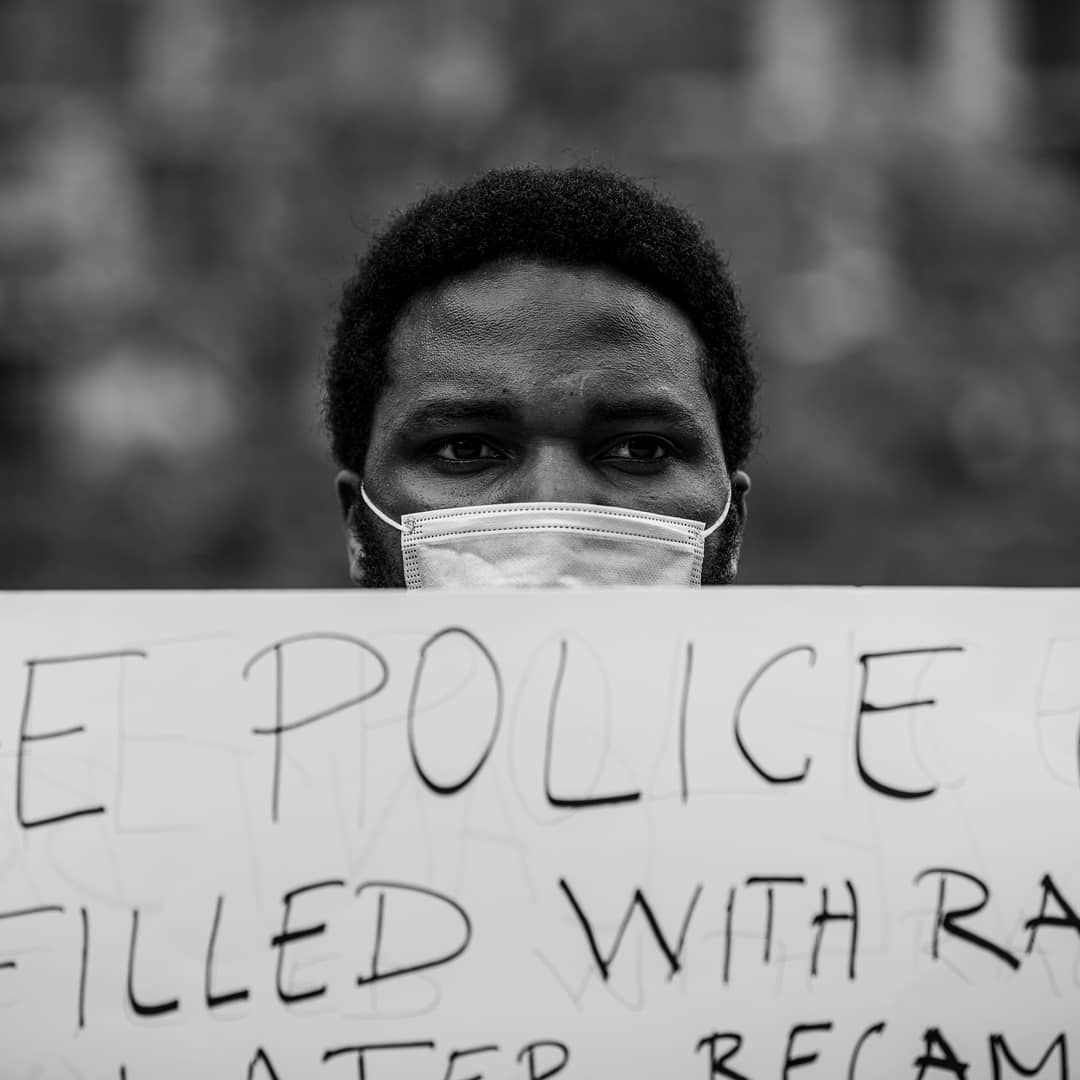 E POLICE
FILLED WITH RA
LATER BECAM